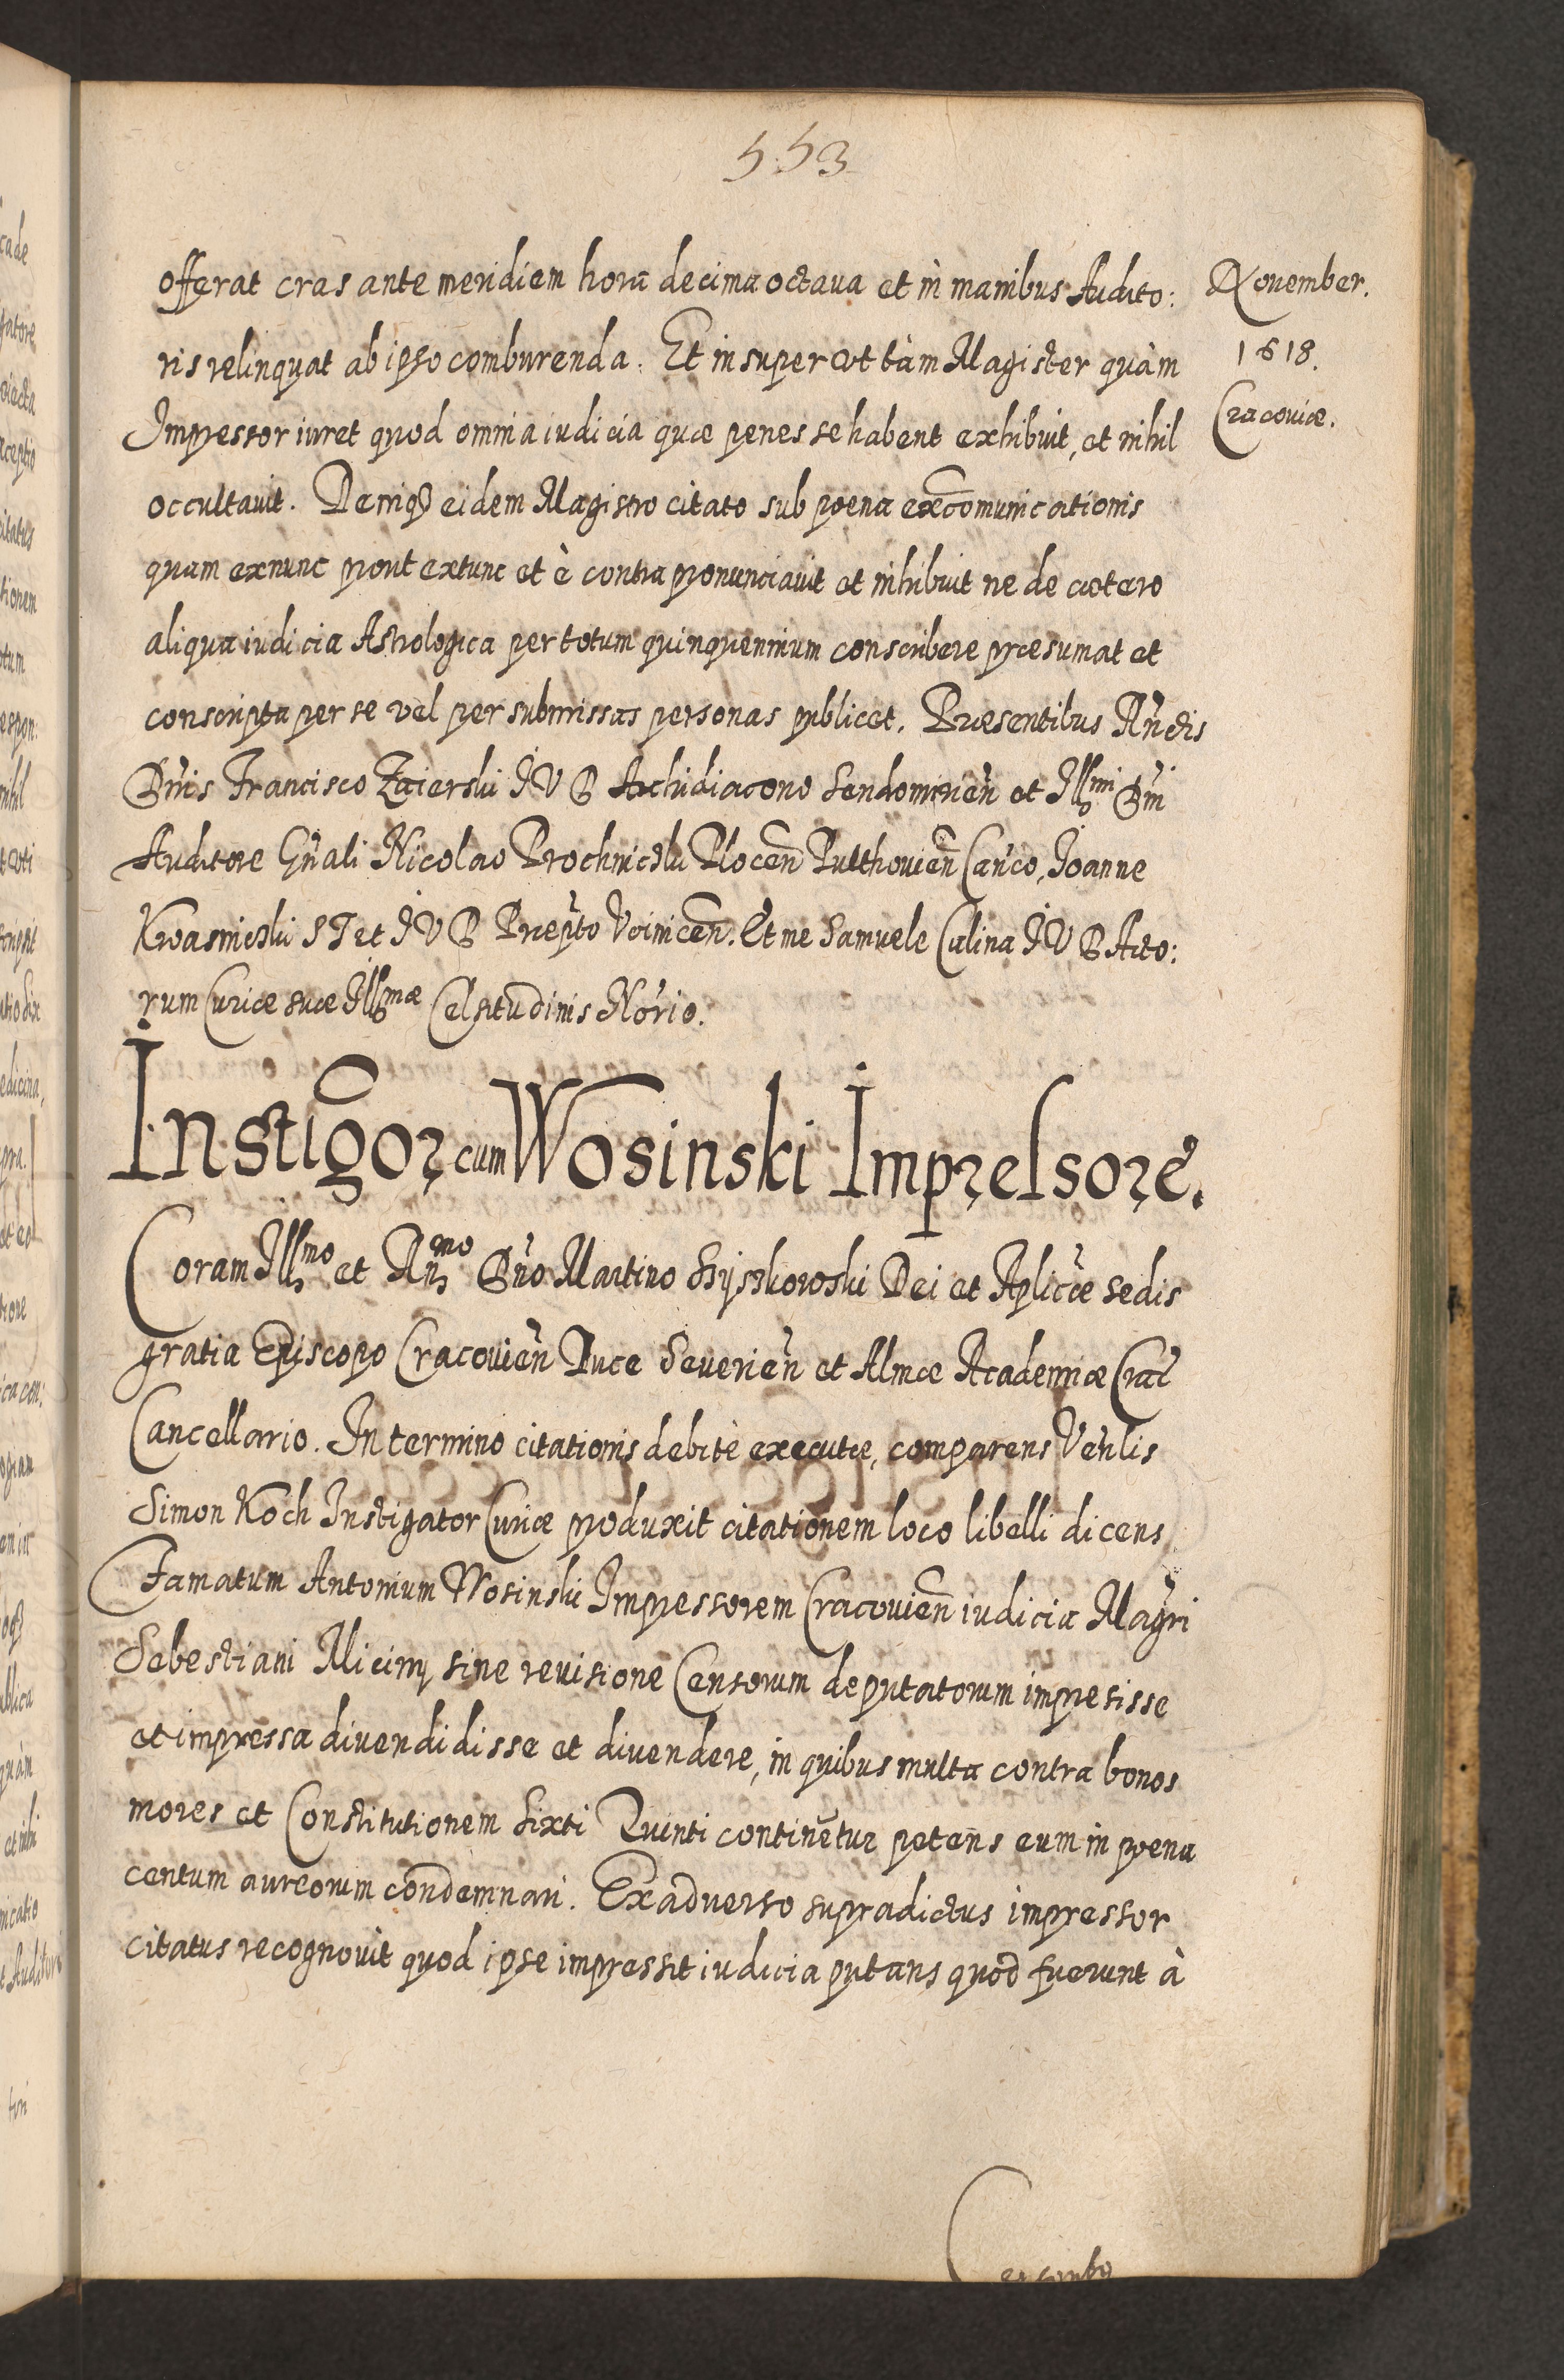 553
offerat cras ante meridiem hora decima octaua et in manibus Audito:
ris relinquat ab ipso comburenda. Et insuper vt tàm Magister quàm
Impressor iuret quod omnia iudicia quæ penes se habent exhibuit, et nihil
occultauit. Deniq3 eidem Magistro citato sub poena excōmunicationis
quam exnunc prout extunc et è contra pronunciauit et inhibuit ne de cætero
aliqua iudicia Astrologica per totum quinquennium conscribere præsumat et
conscripta per se vel per submissas personas publicet. Præsentibus Rńdis
Dńis Francisco Zaierski I V D Archidiacono Sendomirień et Illmi Dńi
Auditore Gńali Nicolao Prochnicski Plocen̄ Pulthouien̄ Cańco, Joanne
Kwasnicski S T et I V D Præpto Voinicen̄. Et me Samuele Calina I V D Acto:
rum Curiæ suæ Illmæ Celsitudinis Norio.
Instigor cum Wosinski Impressore.
Coram Illmo et Rńmo Dńo Martino Szyszkowski Dei et Aplicæ sedis
gratia Episcopo Cracouień Duce Seuerień et Almæ Academiæ Crac
Cancellario. In termino citationis debitè executæ, comparens Veńlis
Simon Koch Instigator Curiæ produxit citationem loco libelli dicens
Famatum Antonium Wosinski Impressorem Cracouien̄ iudicia Magri
Sebestiani Micinij sine reuisione Censorum deputatorum impresisse
et impressa diuendidisse et diuendere, in quibus multa contra bonos
mores et Constitutionem Sixti Quinti continētur petens eum in poena
centum aureorum condemnari. Ex aduerso supradictus impressor
citatus recognouit quod ipse impressit iudicia putans quod fuerunt à
November.
1618.
Cracouiæ.